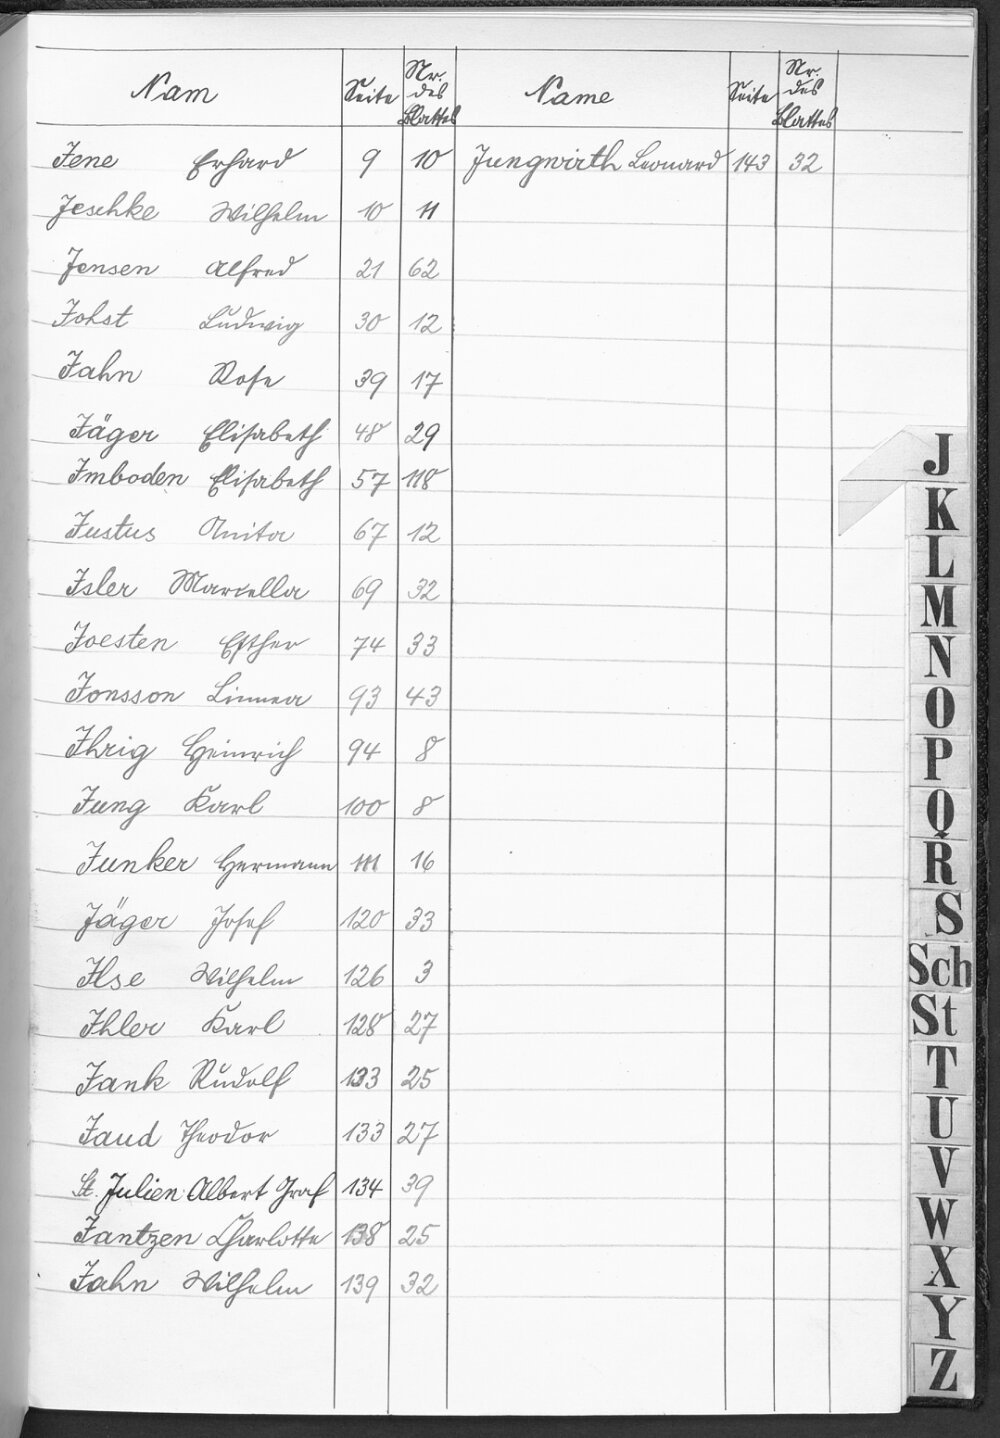 Nam Seite Nr. des Blattes Name Seite Nr. des Blattes
Jene Erhard 9 10 Jungwirth Leonard 143 32
Jeschke Wilhelm 10 11
Jensen Alfred 21 62
Johst Ludwig 30 12
Jahn Rosa 39 17
Jäger Elisabeth 48 29
Imboden Elisabeth 57 118
Justus Anita 67 12
Isler Marcella 69 32
Joesten Esther 74 33
Jonsson Linnea 93 43
Ihrig Heinrich 94 8
Jung Karl 100 8
Junker Hermann 111 16
Jäger Josef 120 33
Ilse Wilhelm 126 3
Ihler Karl 128 27
Jank Rudolf 133 25
Jaud Theodor 133 27
St. Julien Albert Graf 134 39
Jantzen Charlotte 138 25
Jahn Wilhelm 139 32
J
K
L
M
N
O
P
Q
R
S
Sch
St
T
U
V
W
X
Y
Z